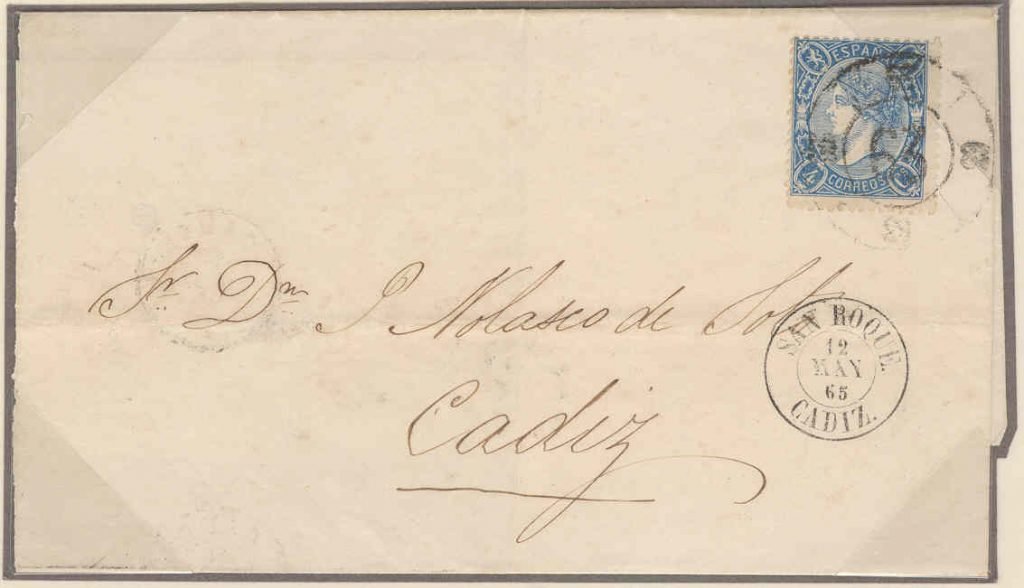 ESPAÑA
4 Cs
CORREOS
Sr. Dn. P Nolasco de Soto
SAN ROQUE
12
MAY
65
CADIZ.
Cadiz